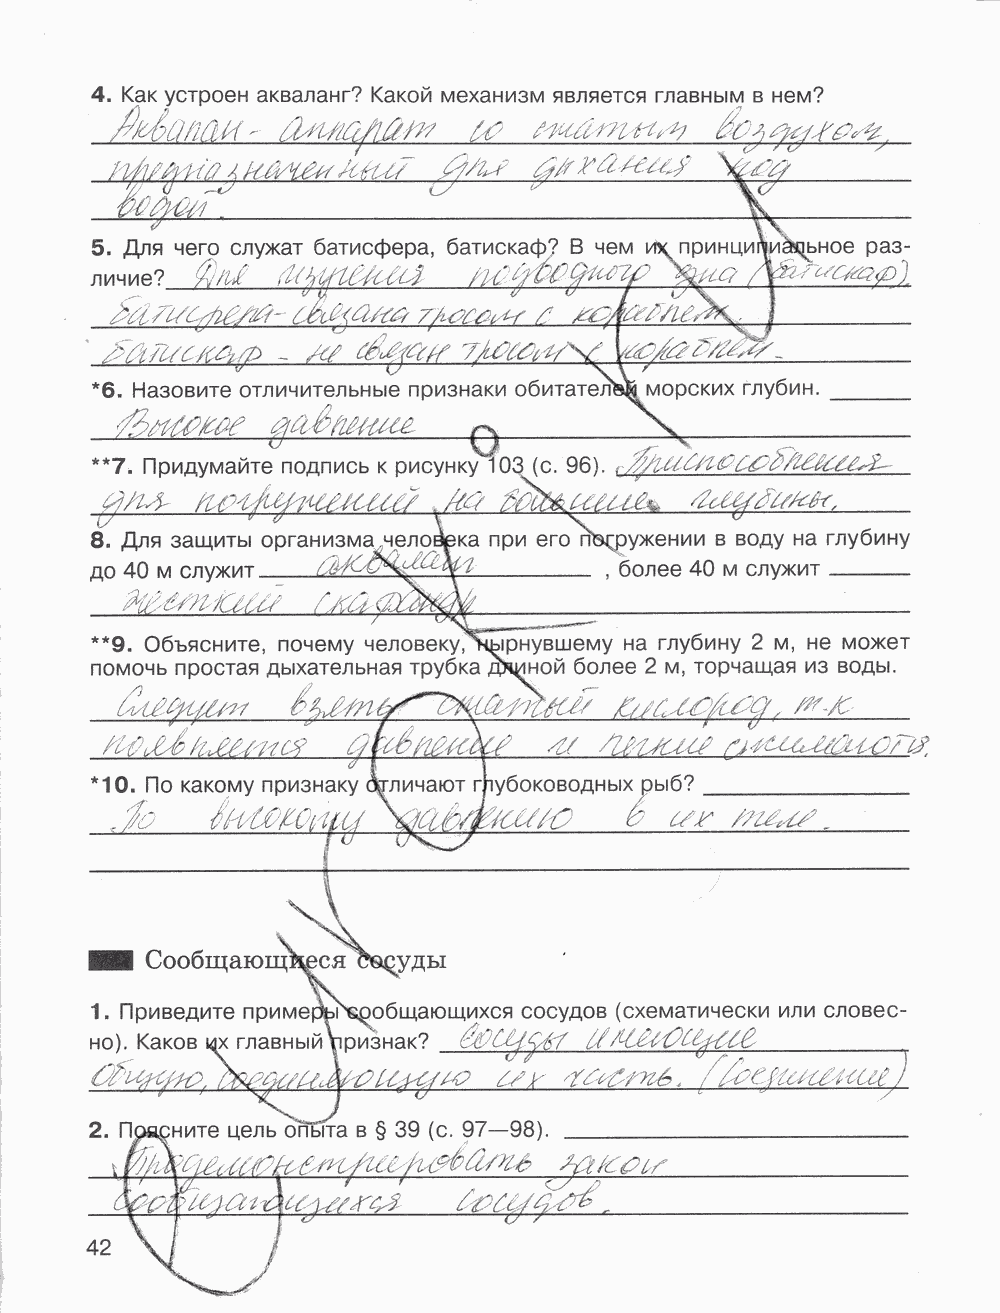 4. Как устроен акваланг? Какой механизм является главным в нем?
Аквалан - аппарат со сжатым воздухом,
предназначенный для дыхания под
водой.
5. Для чего служат батисфера, батискаф? В чем их принципиальное раз-
личие? Для изучения подводного дна (батискаф),
батисфера - связана тросом с кораблем.
батискаф - не связан тросом с кораблем.
*6. Назовите отличительные признаки обитателей морских глубин.
Высокое давление
**7. Придумайте подпись к рисунку 103 (с. 96). Приспособления
для погружений на большие глубины.
8. Для защиты организма человека при его погружении в воду на глубину
до 40 м служит акваланг , более 40 м служит
жесткий скафандр
**9. Объясните, почему человеку, нырнувшему на глубину 2 м, не может
помочь простая дыхательная трубка длиной более 2 м, торчащая из воды.
Следует взять сжатый кислород, т.к
появляется давление и легкие сжимаются.
*10. По какому признаку отличают глубоководных рыб?
По высокому давлению в их теле.
Сообщающиеся сосуды
1. Приведите примеры сообщающихся сосудов (схематически или словес-
но). Каков их главный признак? Сосуды имеющие
общую, соединяющую их часть. (Соединение)
2. Поясните цель опыта в § 39 (с. 97—98).
Продемонстрировать закон
сообщающихся сосудов.
42